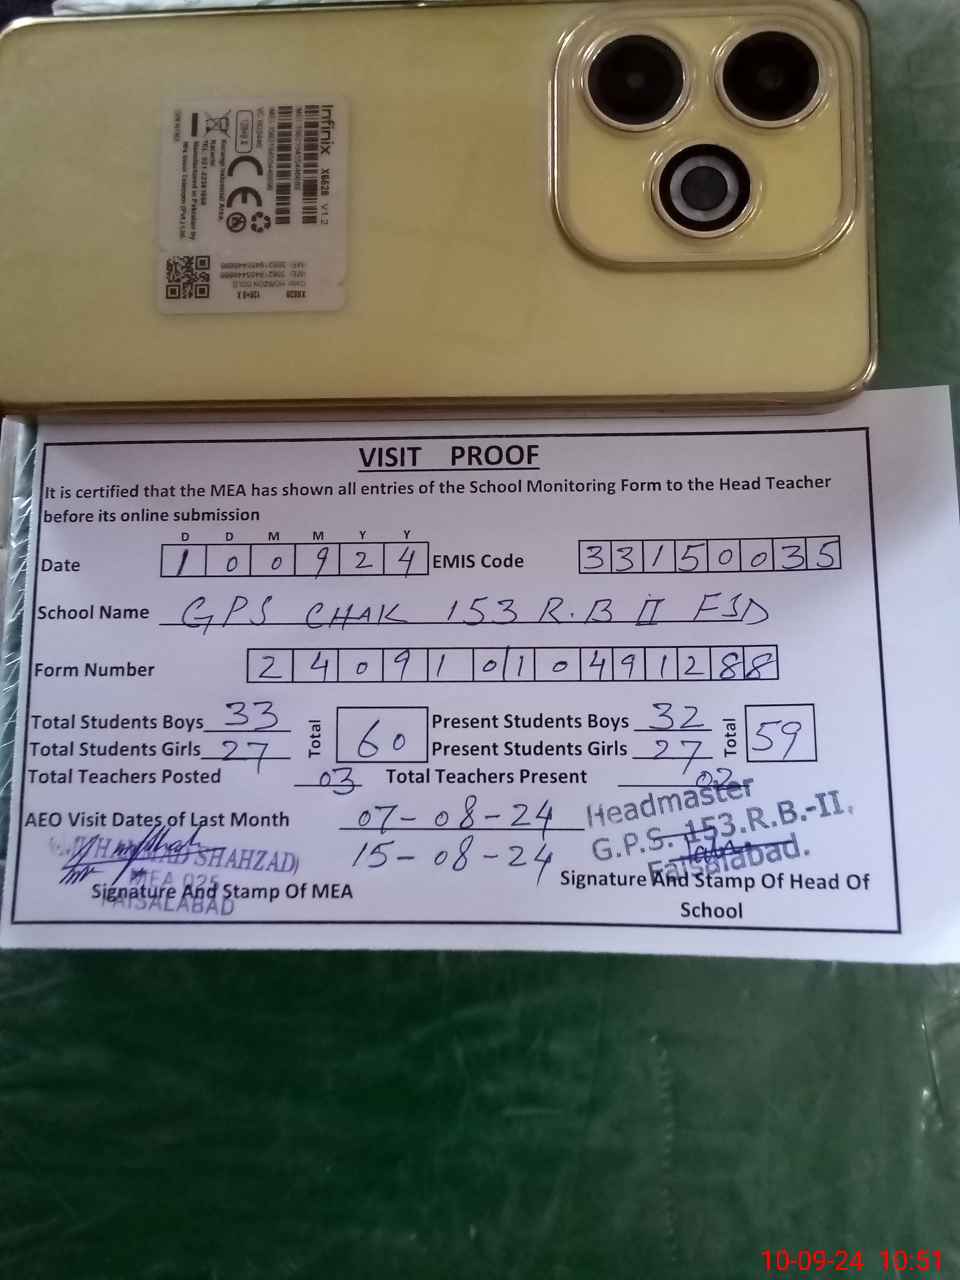 Infinix X6528 V1.2
VISIT PROOF
It is certified that the MEA has shown all entries of the School Monitoring Form to the Head Teacher
before its online submission
D D M M Y Y
Date 1 0 0 9 2 4 EMIS Code 3 3 1 5 0 0 3 5
School Name GPS CHAK 153 R.B II FSD
Form Number 2 4 0 9 1 0 1 0 4 9 1 2 8 8
Total Students Boys 33 Total 60 Present Students Boys 32 Total 59
Total Students Girls 27 Present Students Girls 27
Total Teachers Posted 03 Total Teachers Present 02
AEO Visit Dates of Last Month 07-08-24
15-08-24
Headmaster
G.P.S. 153.R.B.-II,
Faisalabad.
SHAHZAD)
MEA 025
FAISALABAD
Signature And Stamp Of MEA
Signature And Stamp Of Head Of
School
10-09-24 10:51